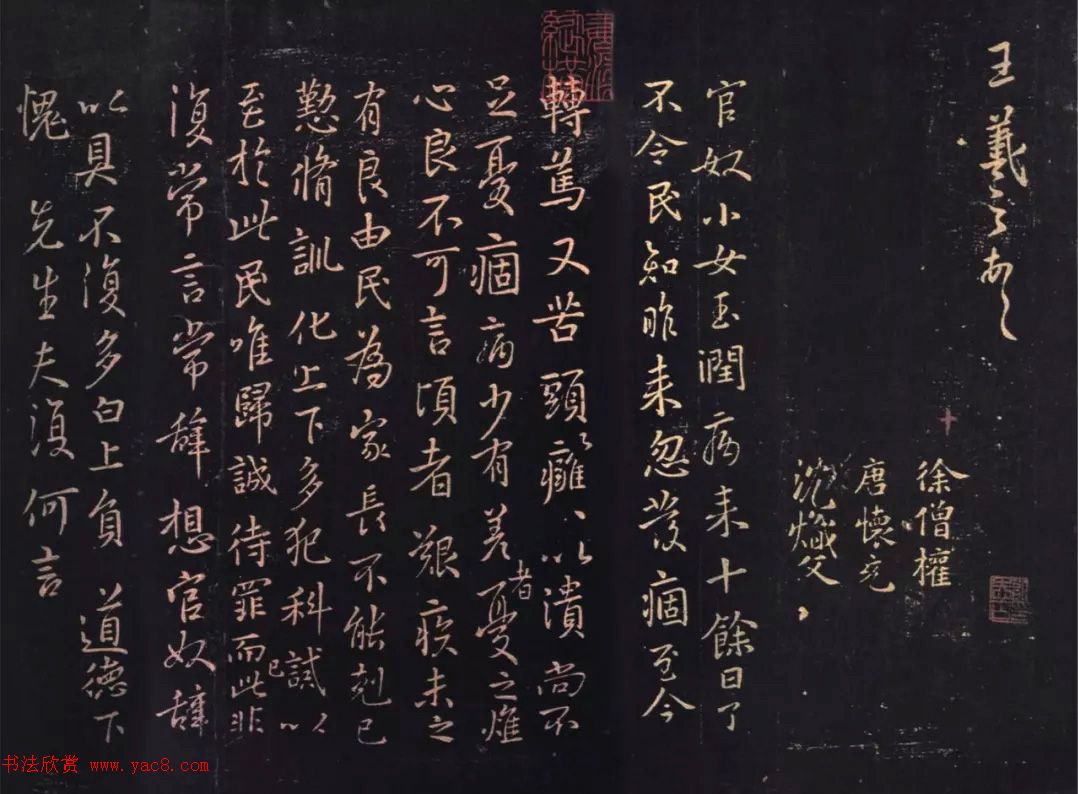 王羲之
徐僧權
唐懷充
沈熾文
官奴小女玉潤病来十餘日了
不令民知昨来忽發痼至今
轉篤又苦頭癰〻以潰尚不
足憂痼病少有差者憂之燋
心良不可言頃者艱疾未之
有良由民為家長不能剋己
懃脩訓化上下多犯科誡以
至於此民唯歸誠待罪而已此非
復常言常辭想官奴辭
以具不復多白上負道德下
愧先生夫復何言
书法欣赏 www.yac8.com